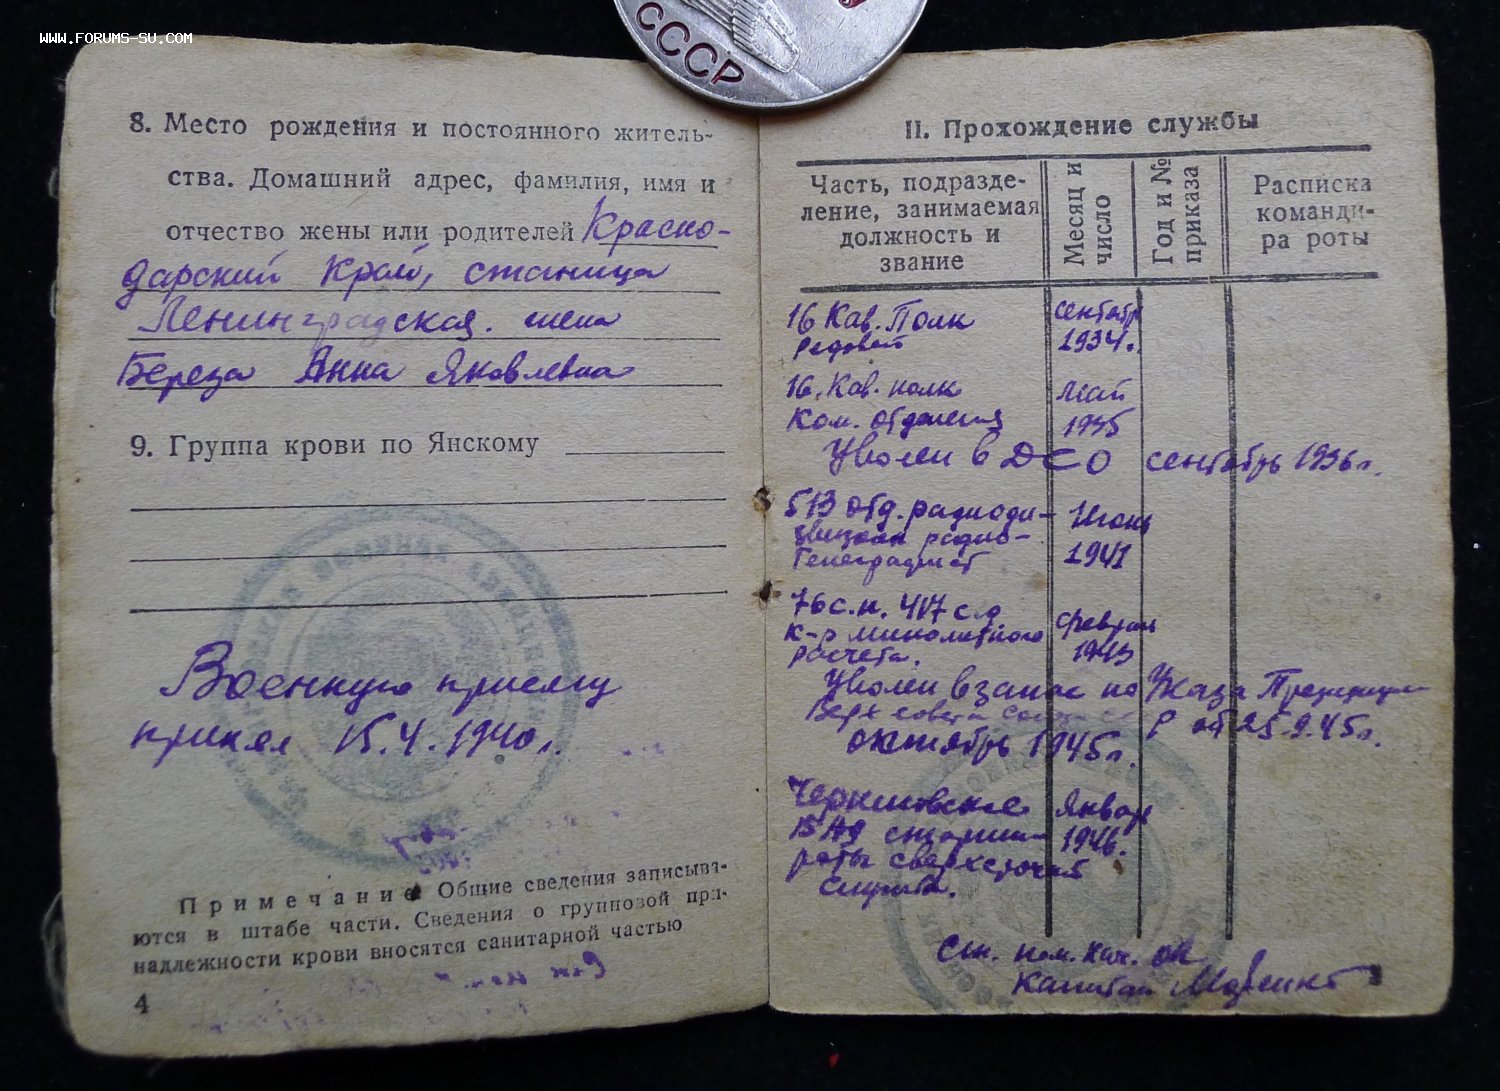 WWW.FORUMS-SU.COM
СССР
8. Место рождения и постоянного житель-
ства. Домашний адрес, фамилия, имя и
отчество жены или родителей Красно-
дарский Край, станица
Ленинградская. жена
Береза Анна Яковлевна
9. Группа крови по Янскому
Военную присягу
принял 15.4.1940г.
Примечание Общие сведения записыва-
ются в штабе части. Сведения о групповой при-
надлежности крови вносятся санитарной частью
4
II. Прохождение службы
Часть, подразде-
ление, занимаемая
должность и
звание
Месяц и
число
Год и №
приказа
Расписка
команди-
ра роты
16 Кав. Полк сентябр
рядовой 1934г.
16. Кав. полк май
Ком. отделения 1935
Уволен в ДСО сентябрь 1936г.
513 отд. радиоди- Июнь
визион радио-
телеграфист 1941
76 с.п. 417 с.д феврал
к-р минометного
расчета. 1943
Уволен в запас по Указу Президиума
Верх совета Союза СС Р от 25.9.45г.
октябрь 1945г.
Январ
старшин 1946г.
роты сверхсрочной
службы.
Ст. пом. нач.
капитан